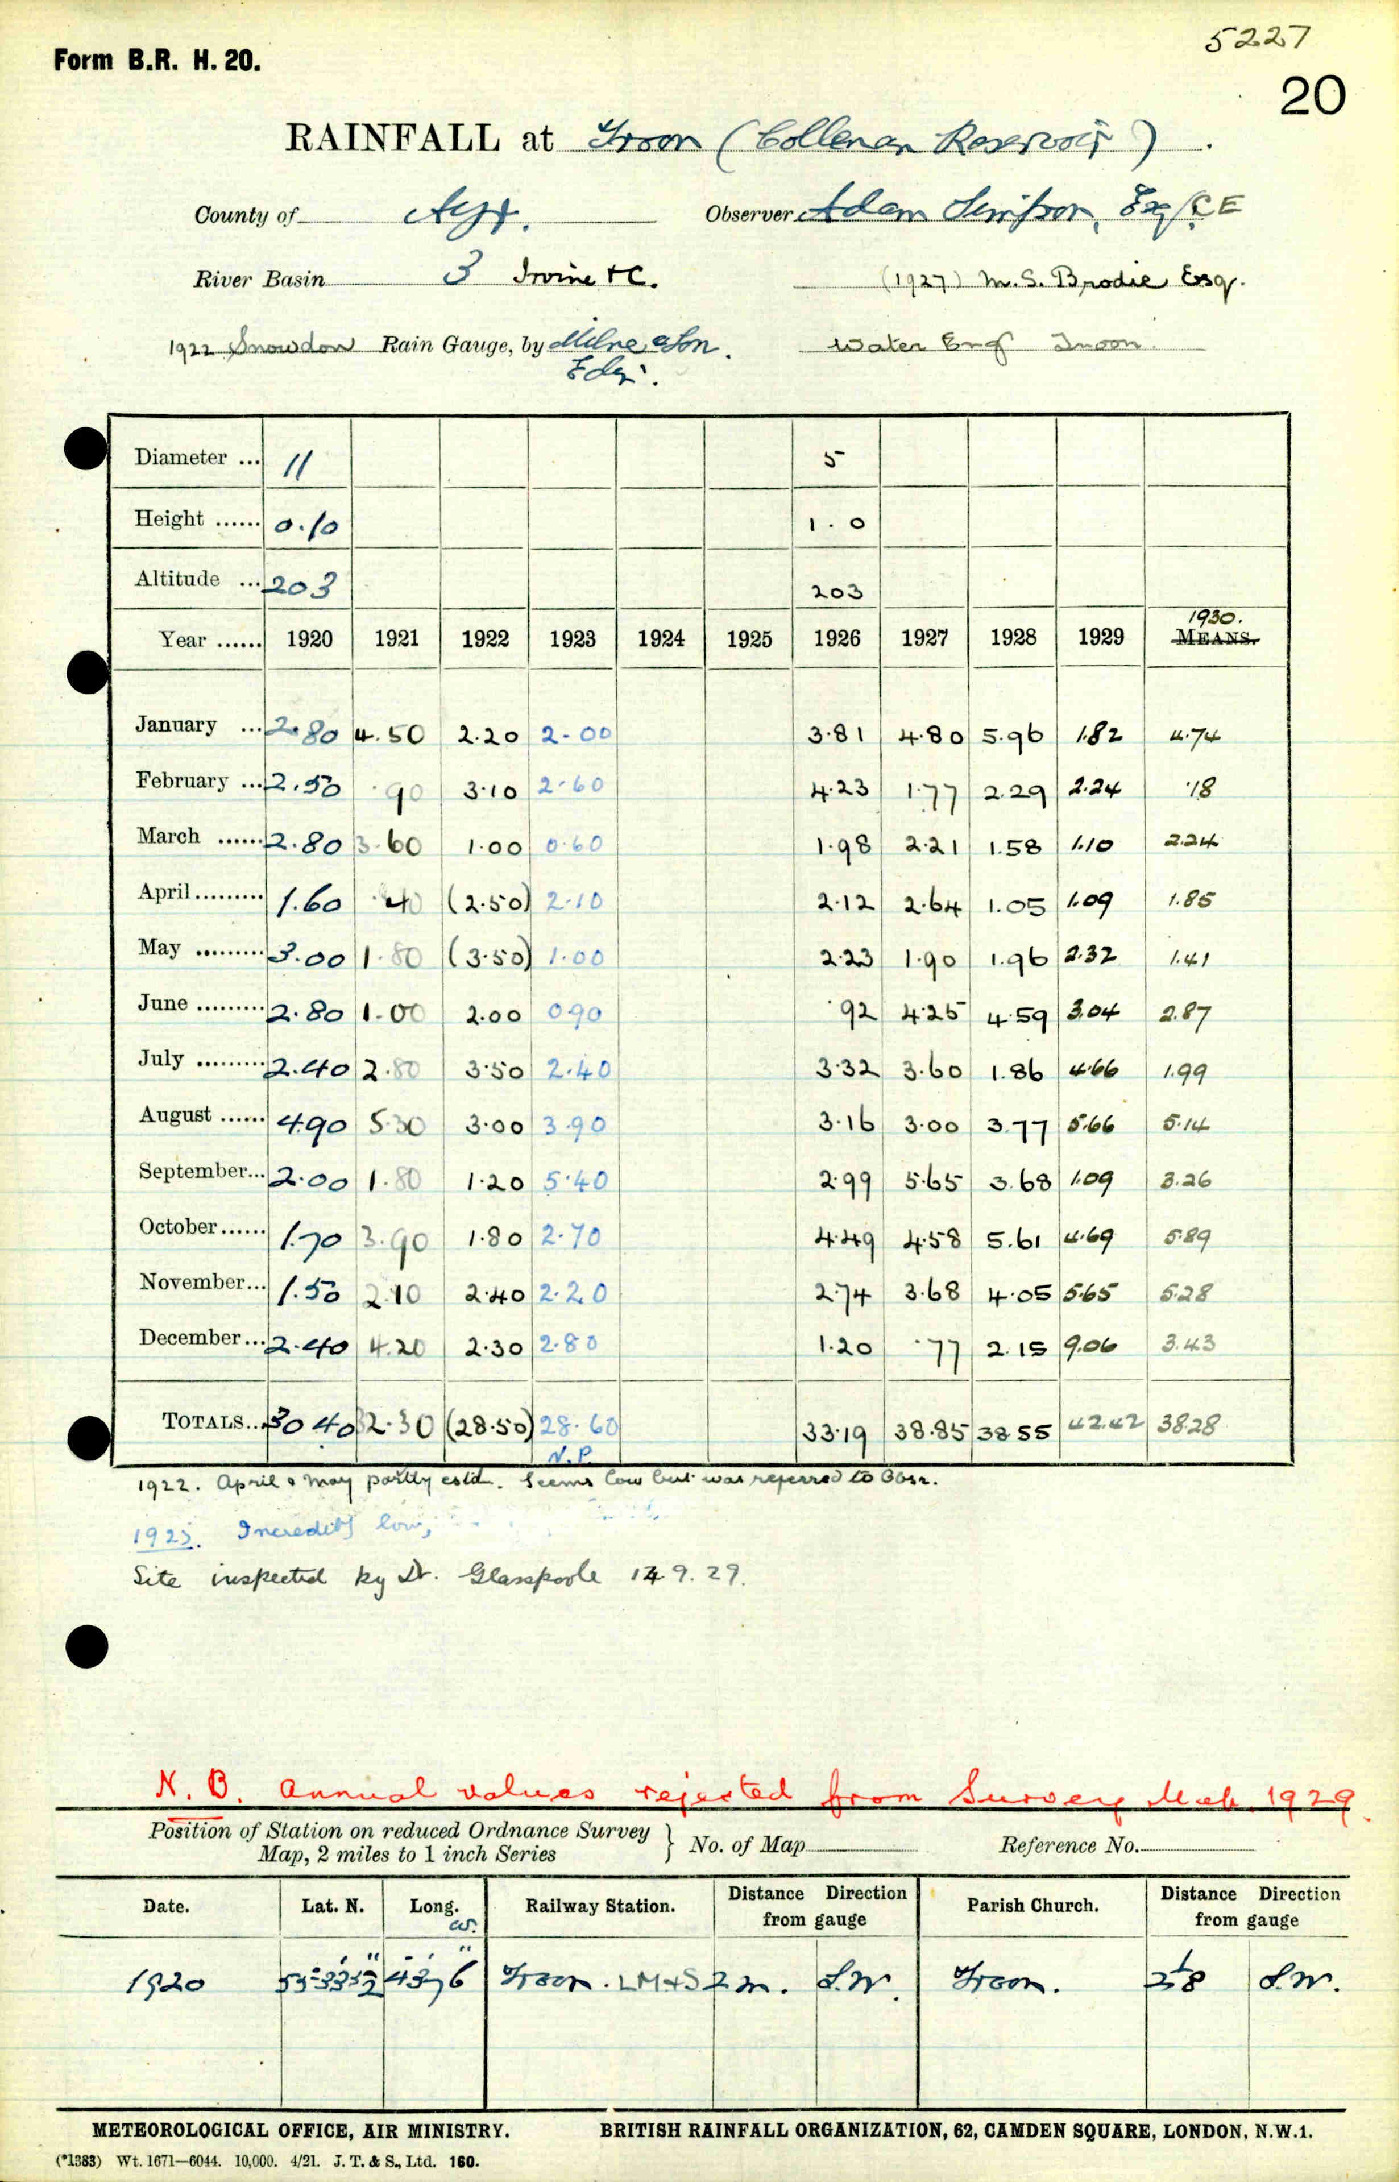 5227
Form B.R. H. 20.
20
RAINFALL at Troon (Collenan Reservoir).
County of Ayr. Observer Adam Simpson, Esq, C E
River Basin 3 Irvine &C. (1927) M.S. Brodie Esq.
1922 Snowdon Rain Gauge, by Milne & Son. Water Eng Troon.
Edin.
Diameter ... 11 5
Height ...... 0.10 1.0
Altitude ... 203 203
1930.
Year ...... 1920 1921 1922 1923 1924 1925 1926 1927 1928 1929 MEANS.
January ... 2.80 4.50 2.20 2.00 3.81 4.80 5.96 1.82 4.74
February ... 2.50 .90 3.10 2.60 4.23 1.77 2.29 2.24 .18
March ...... 2.80 3.60 1.00 0.60 1.98 2.21 1.58 1.10 2.24
April ......... 1.60 .40 (2.50) 2.10 2.12 2.64 1.05 1.09 1.85
May ......... 3.00 1.80 (3.50) 1.00 2.23 1.90 1.96 2.32 1.41
June ......... 2.80 1.00 2.00 0.90 .92 4.25 4.59 3.04 2.87
July ......... 2.40 2.80 3.50 2.40 3.32 3.60 1.86 4.66 1.99
August ...... 4.90 5.30 3.00 3.90 3.16 3.00 3.77 5.66 5.14
September... 2.00 1.80 1.20 5.40 2.99 5.65 3.68 1.09 3.26
October...... 1.70 3.90 1.80 2.70 4.49 4.58 5.61 4.69 5.89
November... 1.50 2.10 2.40 2.20 2.74 3.68 4.05 5.65 5.28
December... 2.40 4.20 2.30 2.80 1.20 .77 2.15 9.06 3.43
TOTALS... 30.40 32.30 (28.50) 28.60 33.19 38.85 38.55 42.42 38.28
N.P.
1922. April & May partly estd. Seems low but was referred to Obsr.
1923. Incredibly low,
Site inspected by Dr. Glasspoole 14.9.29.
N.B. Annual values rejected from Survey Mch. 1929.
Position of Station on reduced Ordnance Survey Map, 2 miles to 1 inch Series } No. of Map Reference No.
Date. Lat. N. Long. W. Railway Station. Distance Direction from gauge Parish Church. Distance Direction from gauge
1920 Troon. LM&S 2 m. S.W. Troon. 2 1/8 S.W.
METEOROLOGICAL OFFICE, AIR MINISTRY. BRITISH RAINFALL ORGANIZATION, 62, CAMDEN SQUARE, LONDON, N.W.1.
(*1383) Wt. 1671—6044. 10,000. 4/21. J. T. & S., Ltd. 160.